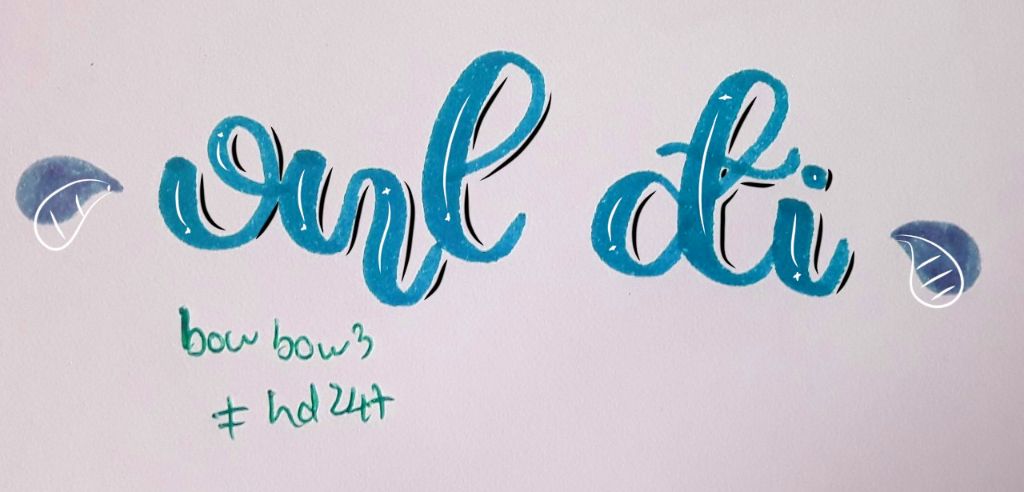 vnl đi
bow bow3
# hd247